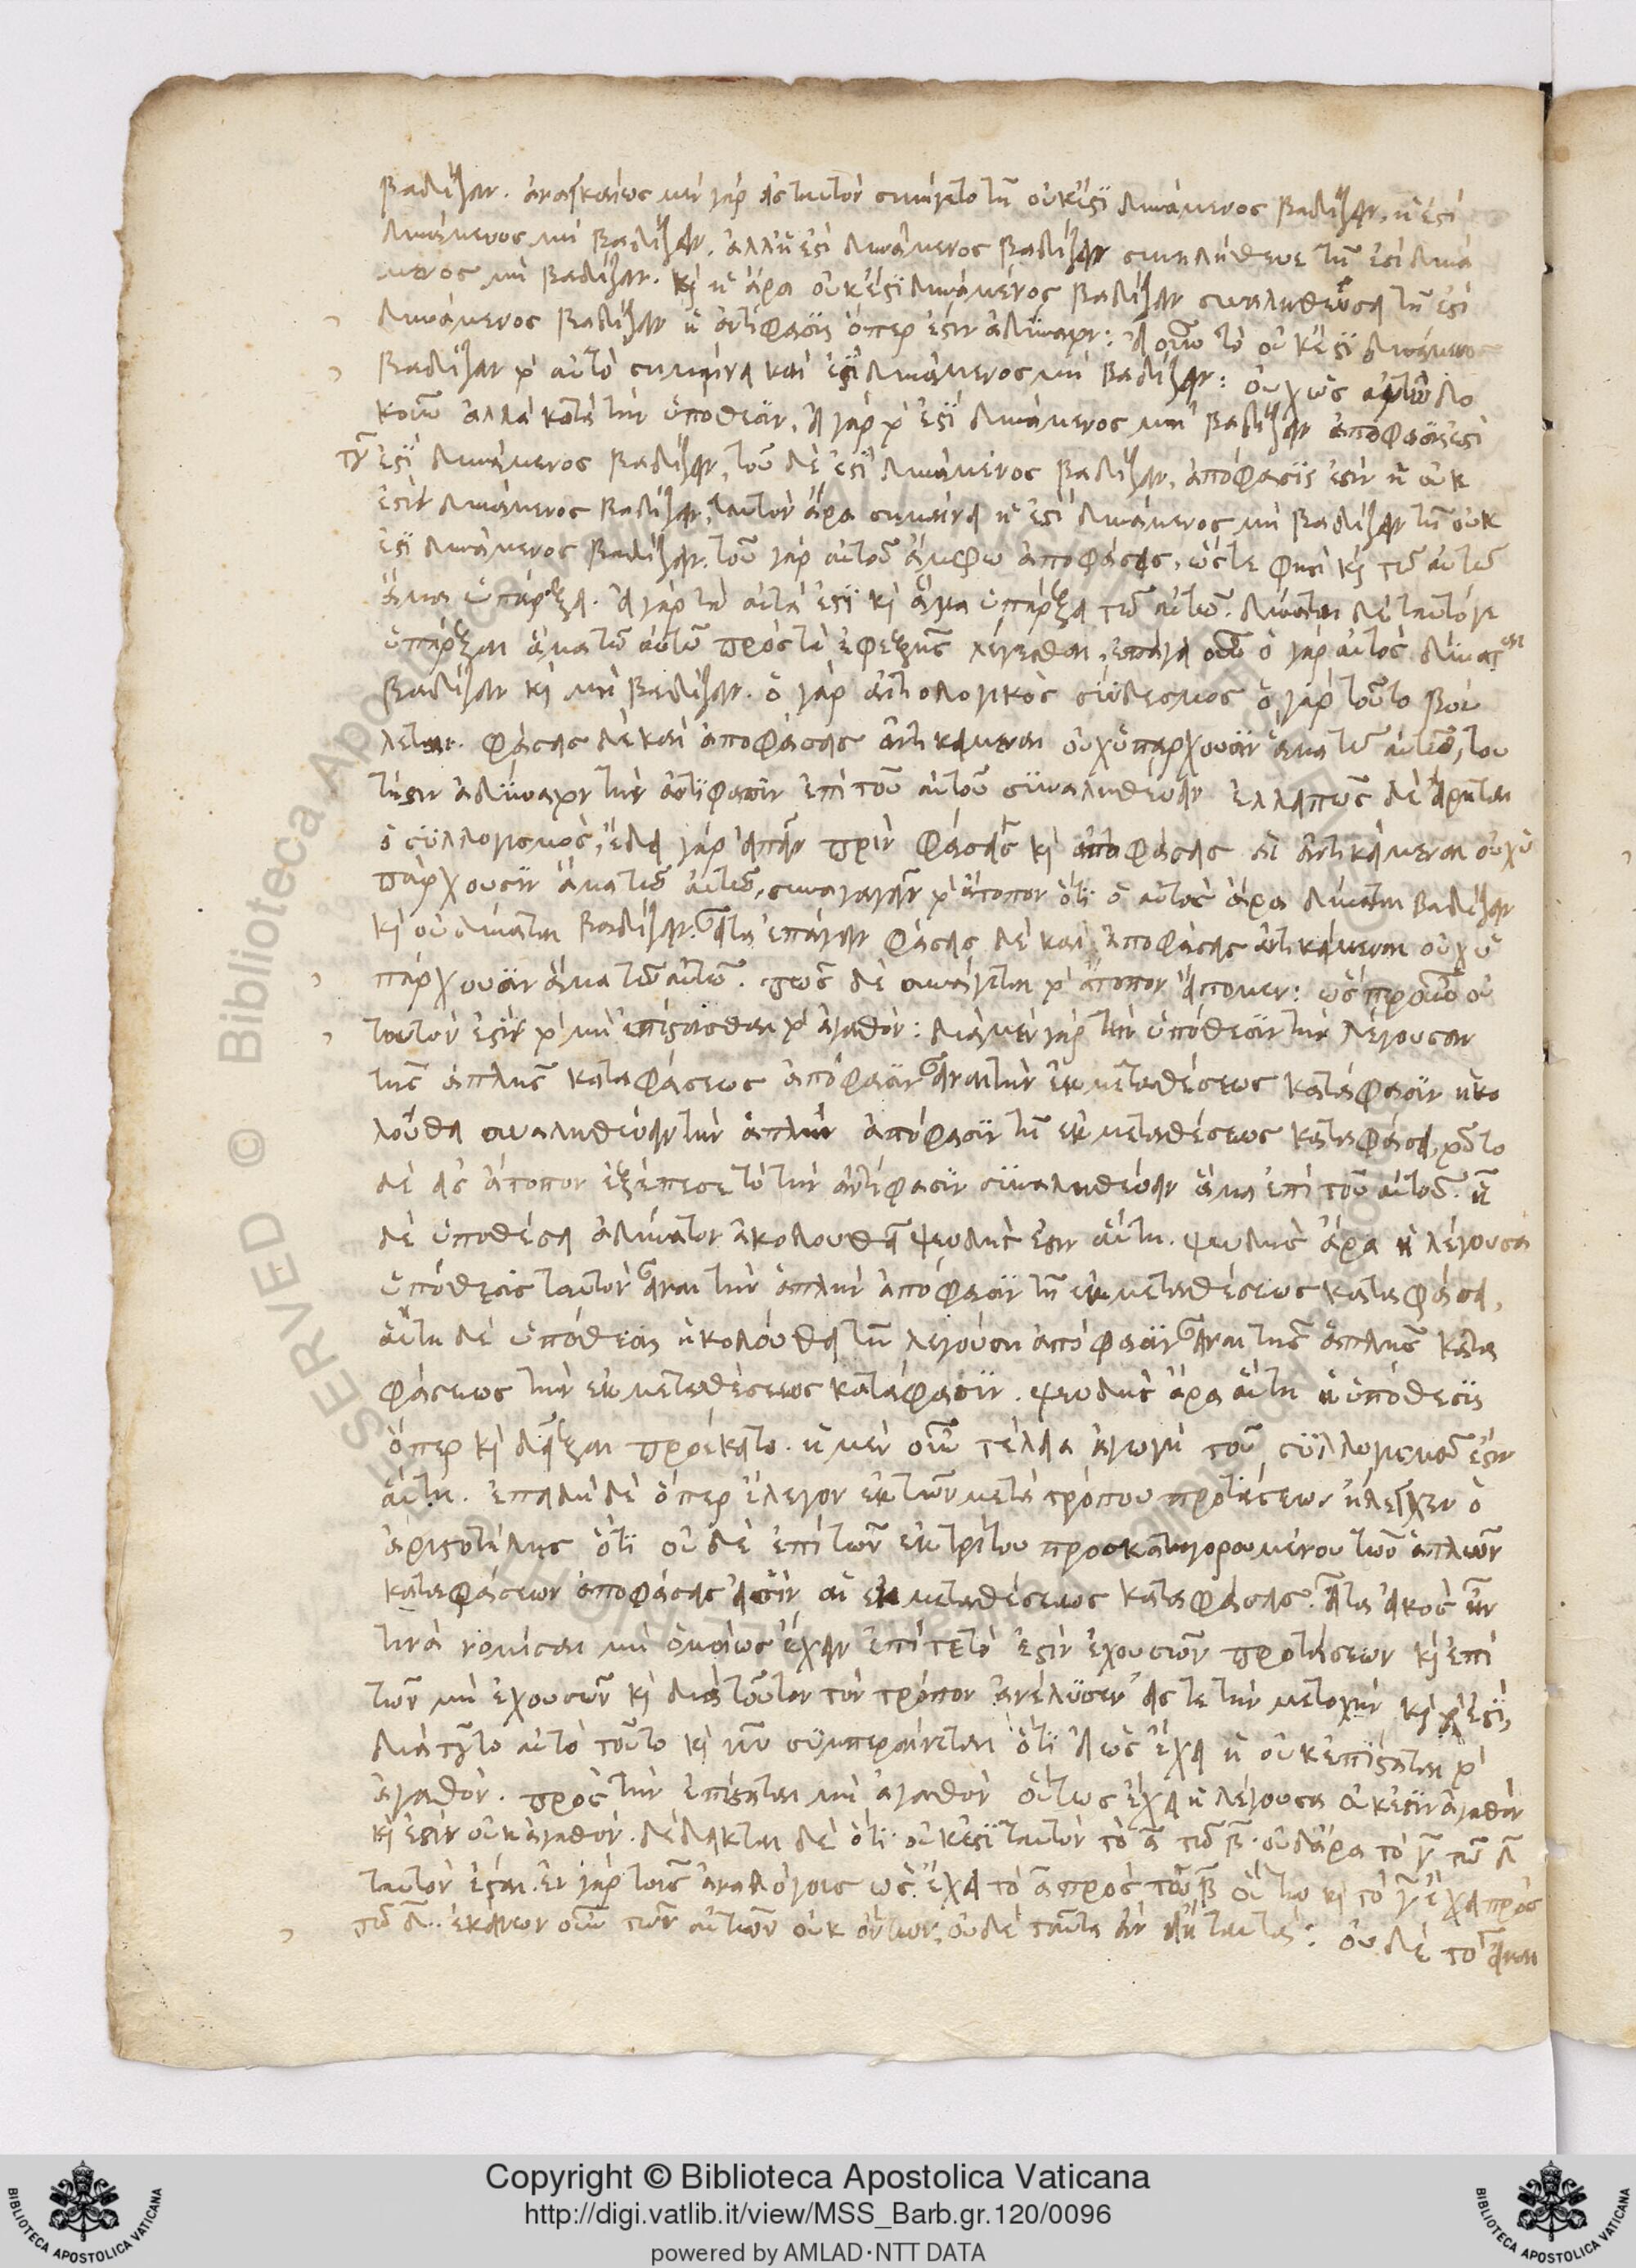 βαδίζειν. ἀναγκαίως μὲν γὰρ εἰς ταυτὸν συνήγετο τῇ οὐκ ἔστι δυνάμενος βαδίζειν, ἡ ἔστι
δυνάμενος μὴ βαδίζειν. ἀλλ' ἡ ἔστι δυνάμενος βαδίζειν συνηλήθευε τῇ ἔστι δυνά
μενος μὴ βαδίζειν. καὶ ἡ ἄρα οὐκ ἔστι δυνάμενος βαδίζειν συναληθεύσει τῇ ἔστι
δυνάμενος βαδίζειν ἡ ἀντίφασις ὅπερ ἐστὶν ἀδύνατον: εἰ οὖν τὸ οὐκ ἔστι δυνάμενος
βαδίζειν τὸ αὐτὸ σημαίνει καὶ ἔστι δυνάμενος μὴ βαδίζειν: οὐχ ὡς αὐτῷ δο
κοῦν ἀλλὰ κατὰ τὴν ὑπόθεσιν. εἰ γὰρ τὸ ἔστι δυνάμενος μὴ βαδίζειν ἀπόφασις ἐστὶ
τοῦ ἔστι δυνάμενος βαδίζειν, τοῦ δὲ ἔστι δυνάμενος βαδίζειν, ἀπόφασις ἐστὶν ἡ οὐκ
ἔστιν δυνάμενος βαδίζειν, ταυτὸν ἄρα σημαίνει ἡ ἔστι δυνάμενος μὴ βαδίζειν τῇ οὐκ
ἔστι δυνάμενος βαδίζειν. τοῦ γὰρ αὐτοῦ ἄμφω ἀποφάσεις, ὥστε φησὶ καὶ τῷ αὐτῷ
ἅμα ὑπάρξει. εἰ γὰρ τὰ αὐτά ἐστι καὶ ἅμα ὑπάρξει τῷ αὐτῷ. δύναται δὲ ταυτόν
ὑπάρξαι ἅμα τῷ αὐτῷ πρὸς τὰ ἐφεξῆς λέγεσθαι, ἐπάγει οὖν ὁ γὰρ αὐτὸς δύναται
βαδίζειν καὶ μὴ βαδίζειν. ὁ γὰρ αἰτιολογικὸς σύνδεσμος ὁ γὰρ τοῦτο βού
λεται. φάσεις δὲ καὶ ἀποφάσεις ἀντικείμεναι οὐχ ὑπάρχουσιν ἅμα τῷ αὐτῷ, του
τέστιν ἀδύνατον τὴν ἀντίφασιν ἐπὶ τοῦ αὐτοῦ συναληθεύειν ἐλλειπῶς δὲ εἴρηται
ὁ συλλογισμός, ἔδει γὰρ εἰπεῖν πρὶν φάσεις καὶ ἀποφάσεις αἱ ἀντικείμεναι οὐχ ὑ
πάρχουσιν ἅμα τῷ αὐτῷ, συναγαγεῖν τὸ ἄτοπον ὅτι ὁ αὐτὸς ἄρα δύναται βαδίζειν
καὶ οὐ δύναται βαδίζειν. εἶτα ἐπάγειν φάσεις δὲ καὶ ἀποφάσεις ἀντικείμεναι οὐχ ὑ
πάρχουσιν ἅμα τῷ αὐτῷ. πῶς δὲ συνάγεται τὸ ἄτοπον εἴπομεν: ὥσπερ οὖν οὐ
ταυτόν ἐστι τὸ μὴ ἐπίστασθαι τὸ ἀγαθόν: διὰ μὲν γὰρ τὴν ὑπόθεσιν τὴν λέγουσαν
τῆς ἁπλῆς καταφάσεως ἀπόφασιν εἶναι τὴν ἐκ μεταθέσεως κατάφασιν ἠκο
λούθει συναληθεύειν τὴν ἁπλῆν ἀπόφασιν τῇ ἐκ μεταθέσεως καταφάσει, τοῦτο
δὲ εἰς ἄτοπον ἐξέπεσε τὸ τὴν ἀντίφασιν συναληθεύειν ἅμα ἐπὶ τοῦ αὐτοῦ. ᾗ
δὲ ὑποθέσει ἀδύνατον ἀκολουθεῖ ψευδής ἐστιν αὕτη. ψευδὴς ἄρα ἡ λέγουσα
ὑπόθεσις ταυτὸν εἶναι τὴν ἁπλῆν ἀπόφασιν τῇ ἐκ μεταθέσεως καταφάσει,
αὕτη δὲ ὑπόθεσις ἠκολούθει τῇ λεγούσῃ ἀπόφασιν εἶναι τῆς ἁπλῆς κατα
φάσεως τὴν ἐκ μεταθέσεως κατάφασιν. ψευδὴς ἄρα αὕτη ἡ ὑπόθεσις
ὅπερ καὶ δεῖξαι προέκειτο. ἡ μὲν οὖν τελεία ἀγωγὴ τοῦ συλλογισμοῦ ἐστὶν
αὕτη. ἐπειδὴ δὲ ὅπερ ἔλεγον ἐκ τῶν μετὰ τρόπου προτάσεων ἤλεγχεν ὁ
ἀριστοτέλης ὅτι οὐδὲ ἐπὶ τῶν ἐκ τρίτου προσκατηγορουμένου τῶν ἁπλῶν
καταφάσεων ἀποφάσεις εἰσὶν αἱ ἐκ μεταθέσεως καταφάσεις. εἶτα εἰκὸς ἦν
τινὰ νομίσαι μὴ ὁμοίως ἔχειν ἐπί τε τὸ ἔστιν ἐχουσῶν προτάσεων καὶ ἐπὶ
τῶν μὴ ἐχουσῶν καὶ διὰ τοῦτον τὸν τρόπον ἀνέλυσεν εἴς τε τὴν μετοχὴν καὶ τὸ ἔστι,
διὰ τοῦτο αὐτὸ τοῦτο καὶ νῦν συμπεραίνεται ὅτι εἰ ὡς ἔχει ἡ οὐκ ἐπίσταται τὸ
ἀγαθόν. πρὸς τὴν ἐπίσταται μὴ ἀγαθὸν οὕτως ἔχει ἡ λέγουσα οὐκ ἔστιν ἀγαθὸν
καὶ ἔστιν οὐκ ἀγαθόν. δέδεικται δὲ ὅτι οὐκ ἔστι ταυτὸν τὸ α τῷ β. οὐδ' ἄρα τὸ γ τῷ δ
ταυτὸν ἔσται. ἐν γὰρ τοῖς ἀναλόγοις ὡς ἔχει τὸ α πρὸς τὸ β οὕτω καὶ τὸ γ ἔχει πρὸς
τὸ δ. ἐκείνων οὖν τῶν αὐτῶν οὐκ ὄντων, οὐδὲ ταῦτα ἂν εἴη ταυτά: οὐδὲ τὸ εἶναι
Copyright © Biblioteca Apostolica Vaticana
http://digi.vatlib.it/view/MSS_Barb.gr.120/0096
powered by AMLAD·NTT DATA